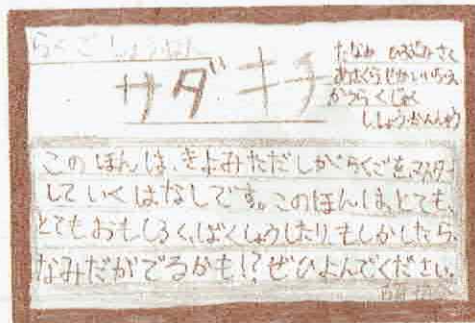 らくごしょうねん
サダキチ
たなか ひろぶみ さく
あさくらせかいいち え
かつらくじゃく
ししょうかんしゅう
このほんは、きよみただしがらくごをマスター
していくはなしです。このほんは、とても、
とてもおもしろく、ばくしょうしたり、もしかしたら、
なみだがでるかも!?ぜひよんでください。